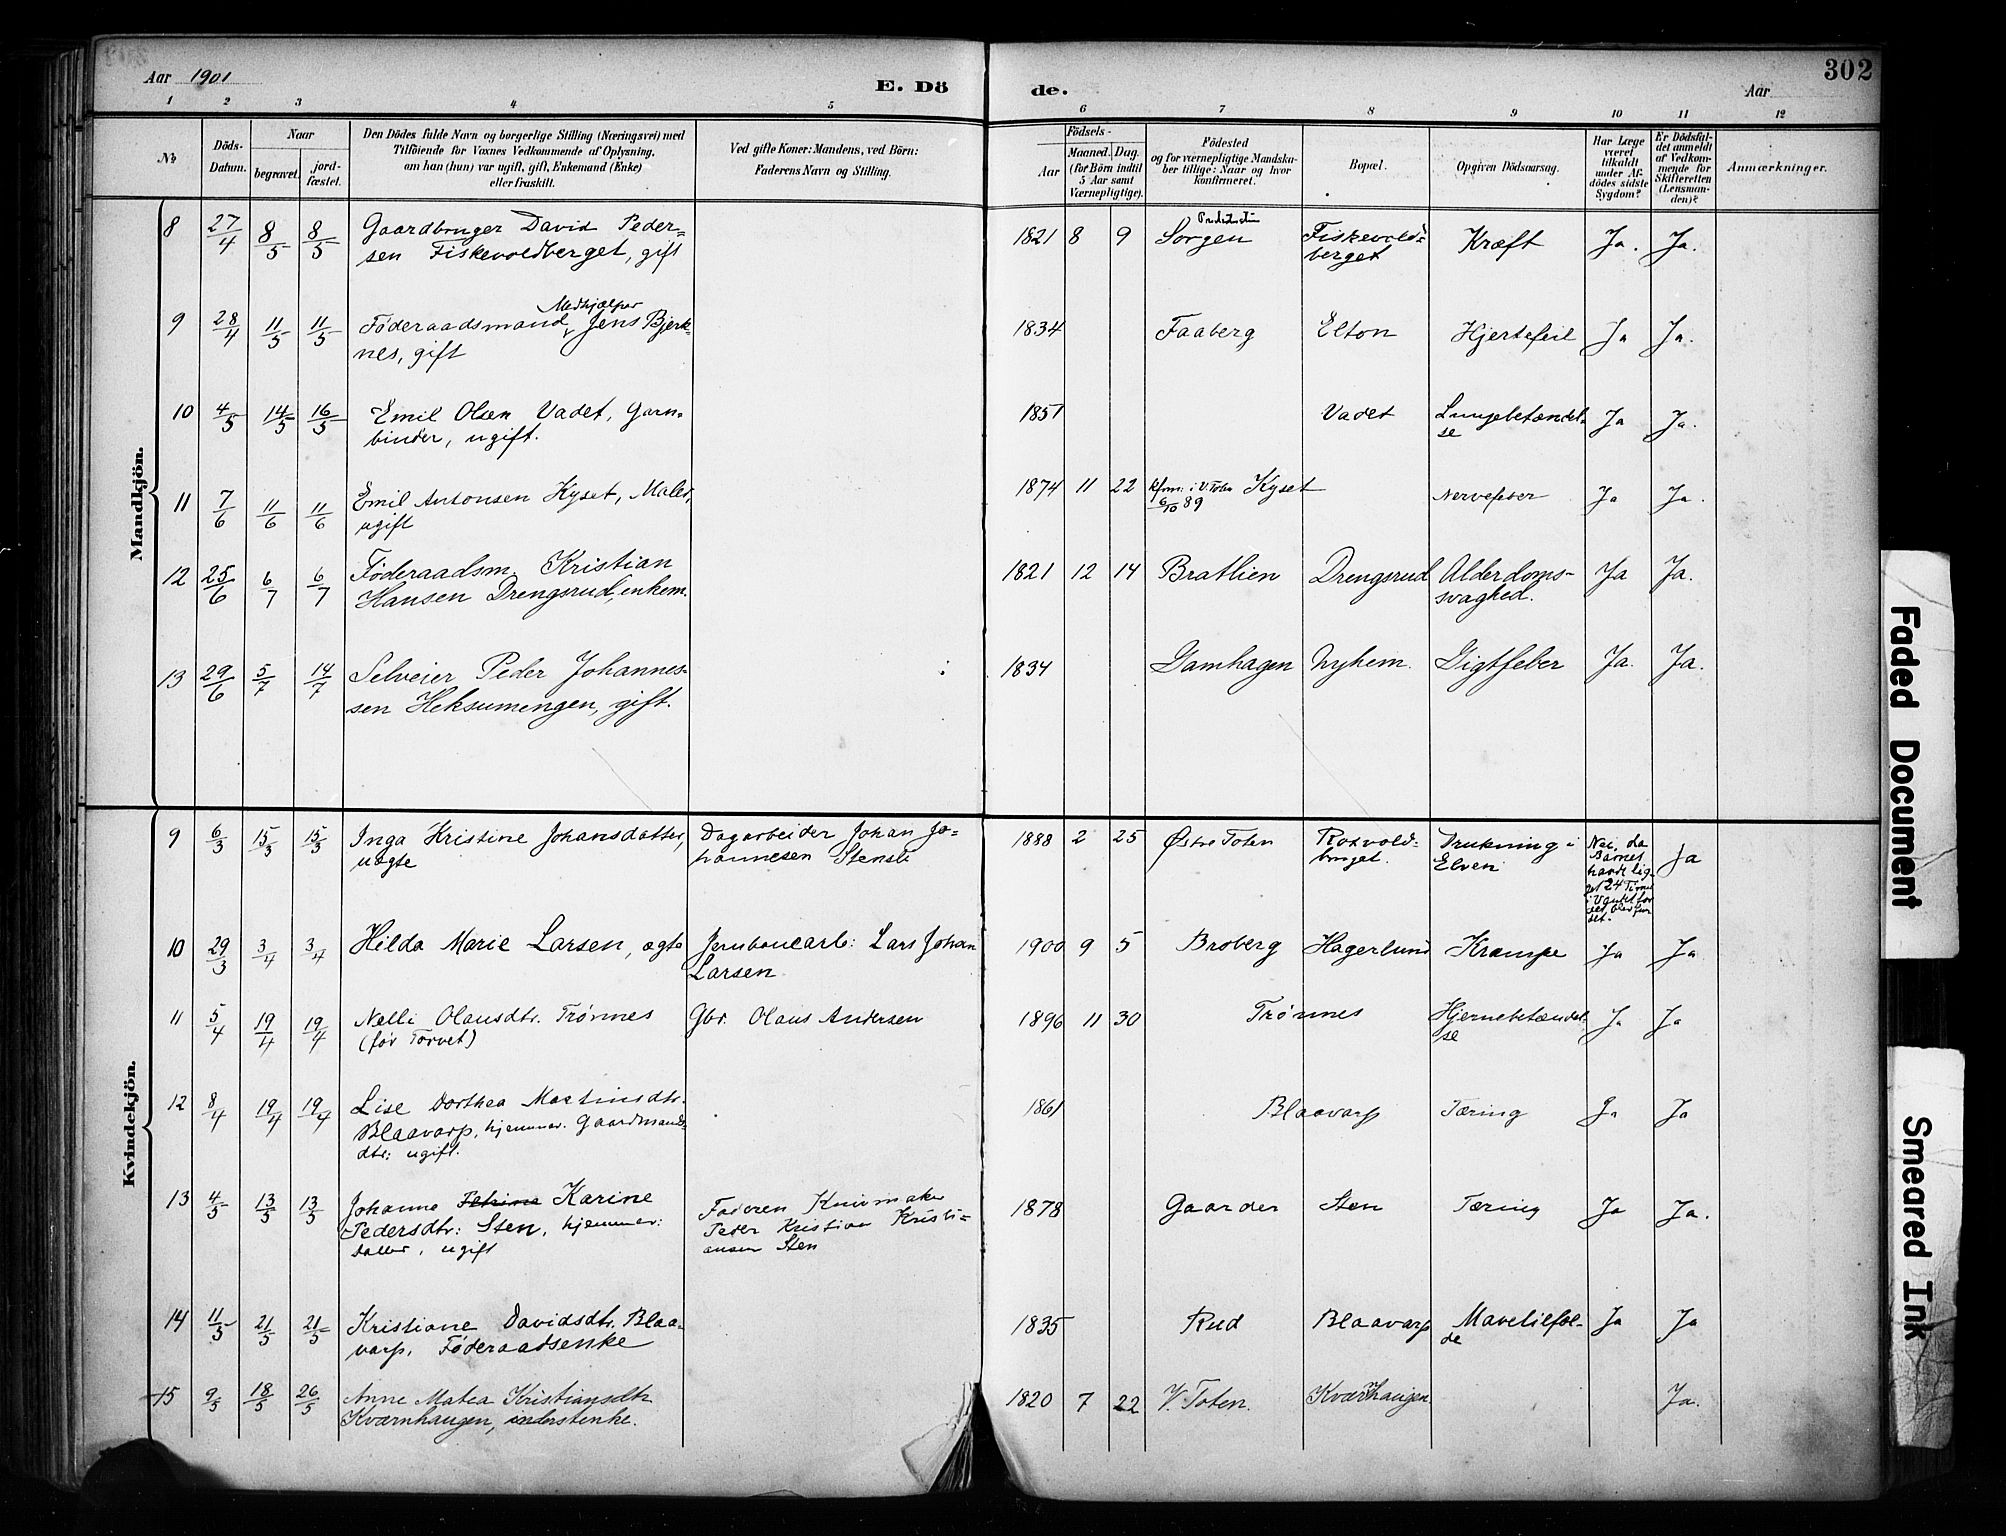 Aar 1901
E. Dö
de.
Aar
302
1 2 3 4 5 6 7 8 9 10 11 12
No
Döds-
Datum.
Naar
begravet.
jord-
fæstet.
Den Dödes fulde Navn og borgerlige Stilling (Næringsvei) med
Tilföiende for Voxnes Vedkommende af Oplysning,
om han (hun) var ugift, gift, Enkemand (Enke)
eller fraskilt.
Ved gifte Koner: Mandens, ved Börn:
Faderens Navn og Stilling.
Födsels-
Aar
Maaned. Dag.
(for Börn indtil
5 Aar samt
Værnepligtige).
Födested
og for værnepligtige Mandska-
ber tillige: Naar og hvor
konfirmeret.
Bopæl.
Opgiven Dödsaarsag.
Har Læge
været
tilkaldt
under Af-
dödes sidste
Sygdom?
Er Dödsfal-
det anmeldt
af Vedkom-
mende for
Skifteretten
(Lensman-
den)?
Anmærkninger.
Mandkjön.
8 27/4 8/5 8/5 Gaardbruger David Peder=
sen Fiskevoldberget, gift
1821 8 9 Sorgen Fiskevold=
berget Kræft Ja. Ja.
9 28/4 11/5 11/5 Føderaadsmand, Medhjælper Jens Bjerk-
nes, gift
1834 Faaberg Elton Hjertefeil Ja Ja.
10 4/5 14/5 16/5 Emil Olsen Vadet, Garn-
binder, ugift.
1851 Vadet Lungebetændel-
se Ja Ja.
11 7/6 11/6 11/6 Emil Antonsen Kyset, Maler,
ugift
1874 11 22 kfrm. i V. Toten Kyset
6/10 89 Nervefeber Ja Ja.
12 25/6 6/7 6/7 Føderaadsm. Kristian
Hansen Drengsrud, enkem.
1821 12 14 Bratlien Drengsrud Alderdoms-
svaghed. Ja Ja.
13 29/6 5/7 14/7 Selveier Peder Johannes-
sen Heksumengen, gift.
1834 Damhagen Nyhem. Gigtfeber Ja. Ja.
Kvindekjön.
9 6/3 15/3 15/3 Inga Kristine Johansdatter,
uægte
Dagarbeider Johan Jo=
hannesen Stensli
1888 2 25 Østre Toten Rosvold-
Drukning i
Elven
Nei, da
Barnet
havde lig-
get 24 Timer
i Vandet før
det blev fun
det. Ja
10 29/3 3/4 3/4 Hilda Marie Larsen, ægte Jernbanearb: Lars Johan
Larsen
1900 9 5 Broberg Hagerlund Krampe Ja Ja
11 5/4 19/4 19/4 Nelli Olausdtr. Trønnes
(før Torvet)
Gbr. Olaus Andersen
1896 11 30 Trønnes Hjernebetændel-
se Ja Ja
12 8/4 19/4 19/4 Lise Dorthea Martinsdtr.
Blaavarp, hjemmev. Gaardmands
dtr: ugift.
1861 Blaavarp Tæring Ja Ja
13 4/5 13/5 13/5 Johanne Petrine Karine
Pedersdtr: Sten, hjemmev:
datter, ugift
Faderen Knivmaker
Peder Kristian Kristi=
ansen Sten
1878 Gaarder Sten Tæring Ja Ja.
14 11/5 21/5 21/5 Kristiane Davidsdtr. Blaa-
varp, Føderaadsenke
1835 Rud Blaavarp Mavetilfæl-
de Ja Ja
15 9/5 18/5 26/5 Anne Matea Kristiansdtr
Kværnhaugen,
1820 7 22 V. Toten. Kværnhaugen. Ja.
Faded Document
Smeared Ink